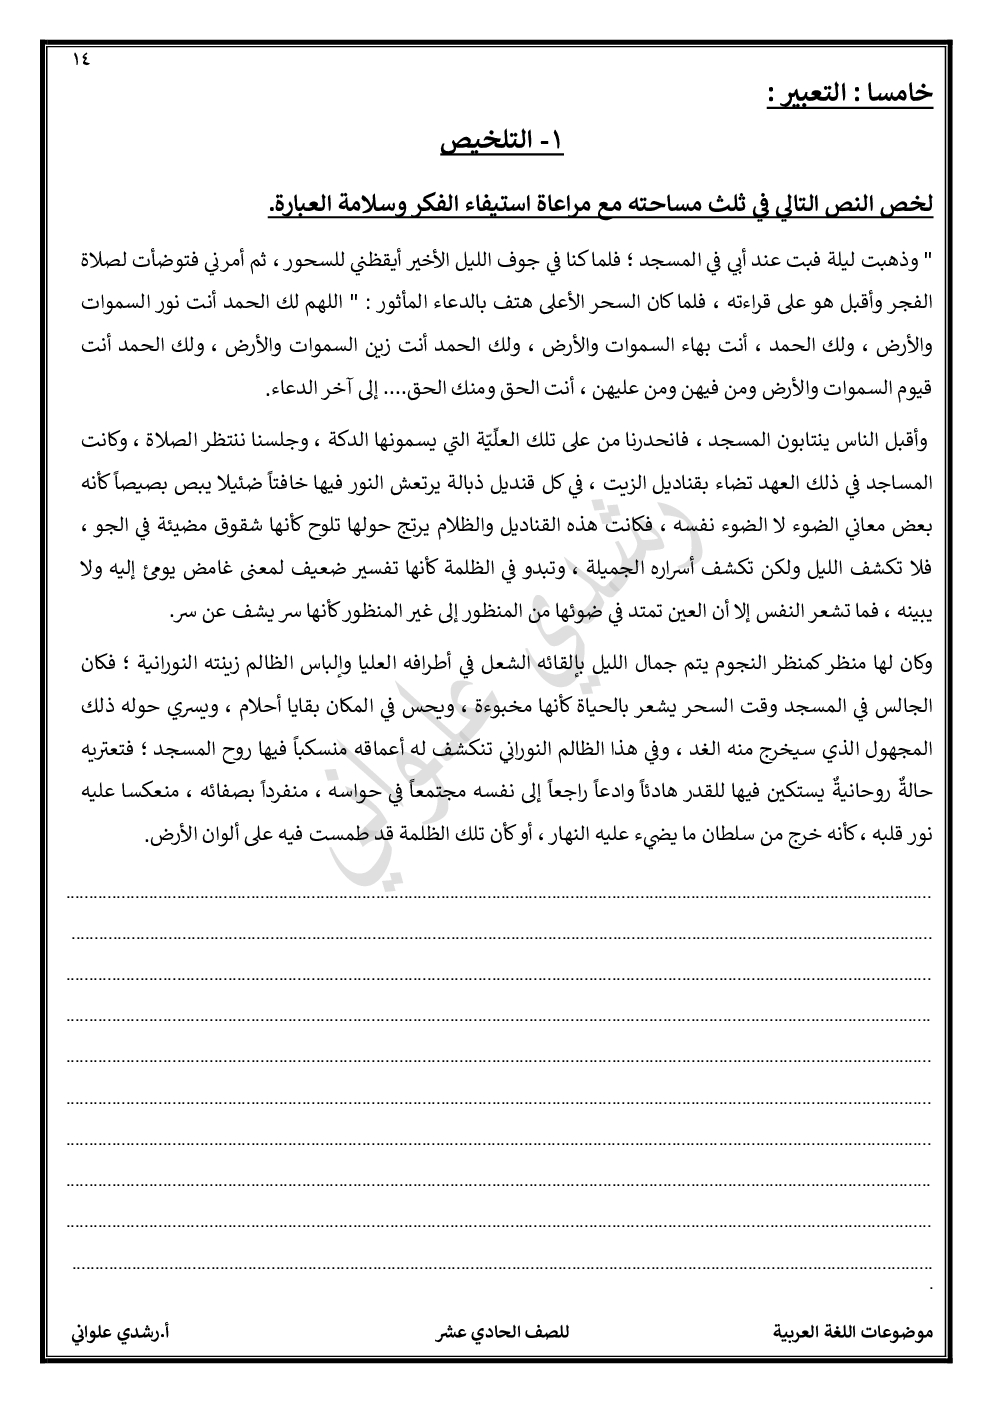 ١٤
خامسا : التعبير :
١- التلخيص
لخص النص التالي في ثلث مساحته مع مراعاة استيفاء الفكر وسلامة العبارة.
" وذهبت ليلة فبت عند أبي في المسجد ؛ فلما كنا في جوف الليل الأخير أيقظني للسحور ، ثم أمرني فتوضأت لصلاة
الفجر وأقبل هو على قراءته ، فلما كان السحر الأعلى هتف بالدعاء المأثور : " اللهم لك الحمد أنت نور السموات
والأرض ، ولك الحمد ، أنت بهاء السموات والأرض ، ولك الحمد أنت زين السموات والأرض ، ولك الحمد أنت
قيوم السموات والأرض ومن فيهن ومن عليهن ، أنت الحق ومنك الحق.... إلى آخر الدعاء.
وأقبل الناس ينتابون المسجد ، فانحدرنا من على تلك العلّيّة التي يسمونها الدكة ، وجلسنا ننتظر الصلاة ، وكانت
المساجد في ذلك العهد تضاء بقناديل الزيت ، في كل قنديل ذبالة يرتعش النور فيها خافتاً ضئيلا يبص بصيصاً كأنه
بعض معاني الضوء لا الضوء نفسه ، فكانت هذه القناديل والظلام يرتج حولها تلوح كأنها شقوق مضيئة في الجو ،
فلا تكشف الليل ولكن تكشف أسراره الجميلة ، وتبدو في الظلمة كأنها تفسير ضعيف لمعنى غامض يومئ إليه ولا
يبينه ، فما تشعر النفس إلا أن العين تمتد في ضوئها من المنظور إلى غير المنظور كأنها سر يشف عن سر.
وكان لها منظر كمنظر النجوم يتم جمال الليل بإلقائه الشعل في أطرافه العليا وإلباس الظالم زينته النورانية ؛ فكان
الجالس في المسجد وقت السحر يشعر بالحياة كأنها مخبوءة ، ويحس في المكان بقايا أحلام ، ويسري حوله ذلك
المجهول الذي سيخرج منه الغد ، وفي هذا الظالم النوراني تنكشف له أعماقه منسكباً فيها روح المسجد ؛ فتعتريه
حالةٌ روحانيةٌ يستكين فيها للقدر هادئاً وادعاً راجعاً إلى نفسه مجتمعاً في حواسه ، منفرداً بصفائه ، منعكسا عليه
نور قلبه ، كأنه خرج من سلطان ما يضيء عليه النهار ، أو كأن تلك الظلمة قد طمست فيه على ألوان الأرض.
رشدي علواني
موضوعات اللغة العربية للصف الحادي عشر أ.رشدي علواني